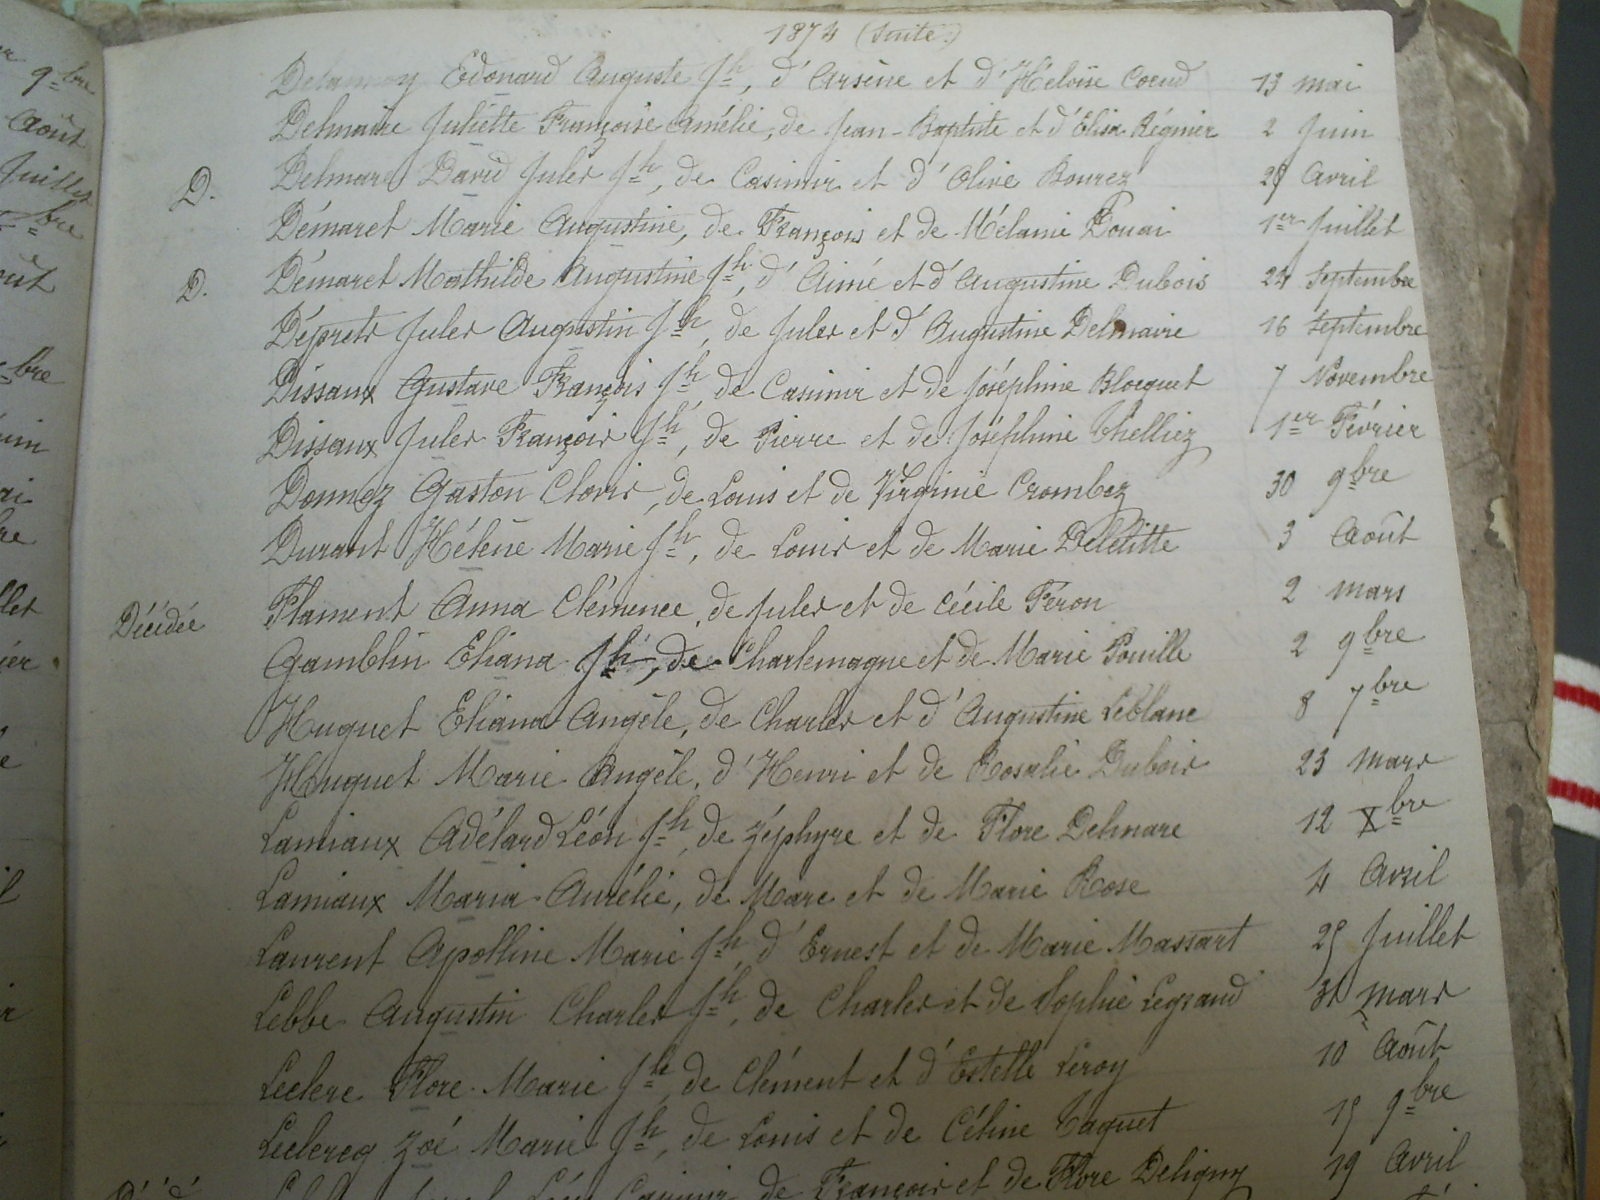 1874 (Suite.)
Delannoy Edouard Auguste Jh, d'Arsène et d'Héloïse Coeud 13 mai
Delmaire Juliette Françoise Amélie, de Jean-Baptiste et d'Élisa Régnier 2 Juin
D. Delmare David Jules Jh, de Casimir et d'Olive Bourez 29 Avril
Démaret Marie Augustine, de François et de Mélanie Douai 1er Juillet
D. Démaret Mathilde Augustine Jh, d'Aimé et d'Augustine Dubois 24 Septembre
Déprets Jules Augustin Jh, de Jules et d'Augustine Delmaire 16 Septembre
Dissaux Gustave François Jh, de Casimir et de Joséphine Blocquet 7 Novembre
Dissaux Jules François Jh, de Pierre et de Joséphine Thelliez 1er Février
Donnez Gaston Clovis, de Louis et de Virginie Crombez 30 9bre
Durant Hélène Marie Jh, de Louis et de Marie Deletitte 3 Août
Décédée Flament Anna Clémence, de Jules et de Cécile Féron 2 mars
Gamblin Eliana Jh, de Charlemagne et de Marie Pouille 2 9bre
Huguet Eliana Angèle, de Charles et d'Augustine Leblanc 8 7bre
Huguet Marie Angèle, d'Henri et de Rosalie Dubois 23 Mars
Lamiaux Adélard Léon Jh, de Zéphyre et de Flore Delmare 12 Xbre
Lamiaux Maria Aurélie, de Marc et de Marie Rose 4 Avril
Laurent Apolline Marie Jh, d'Ernest et de Marie Massart 25 Juillet
Lebbe Augustin Charles Jh, de Charles et de Sophie Legrand 31 Mars
Leclerc Flore Marie Jh, de Clément et d'Estelle Leroy 10 Août
Leclercq Zoé Marie Jh, de Louis et de Céline Taquet 15 9bre
Léon Casimir de François et de Flore Deligny 19 Avril
9bre
Août
Juillet
bre